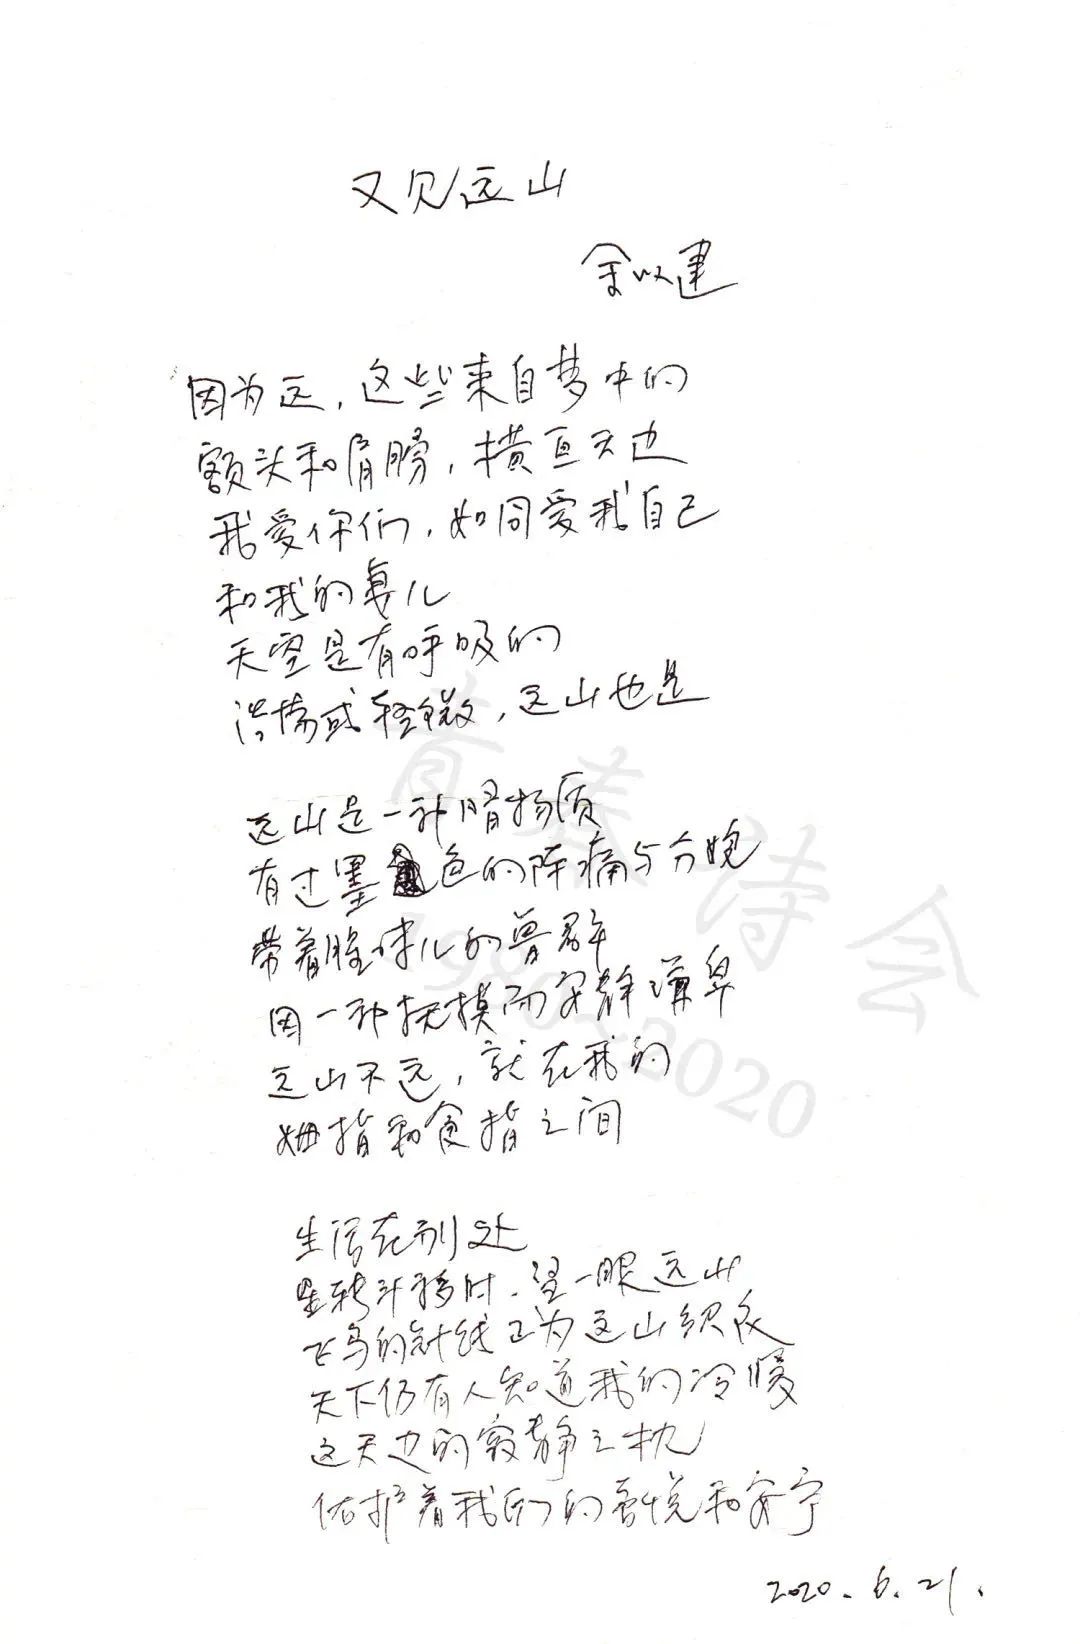 又见远山
余以建
因为远，这些来自梦中的
额头和肩膀，横亘天边
我爱你们，如同爱我自己
和我的妻儿
天空是有呼吸的
浩荡或轻微，远山也是
远山是一种暗物质
有过墨色的阵痛与分娩
带着腥味儿的兽群
因一种抚摸而安静谦卑
远山不远，就在我的
姆指和食指之间
生活在别处
星转斗移时，望一眼远山
飞鸟的针线正为远山织衣
天下仍有人知道我的冷暖
这天边的寂静之枕
佑护着我们的喜悦和安宁
2020.6.21.
青春诗会
1980~2020